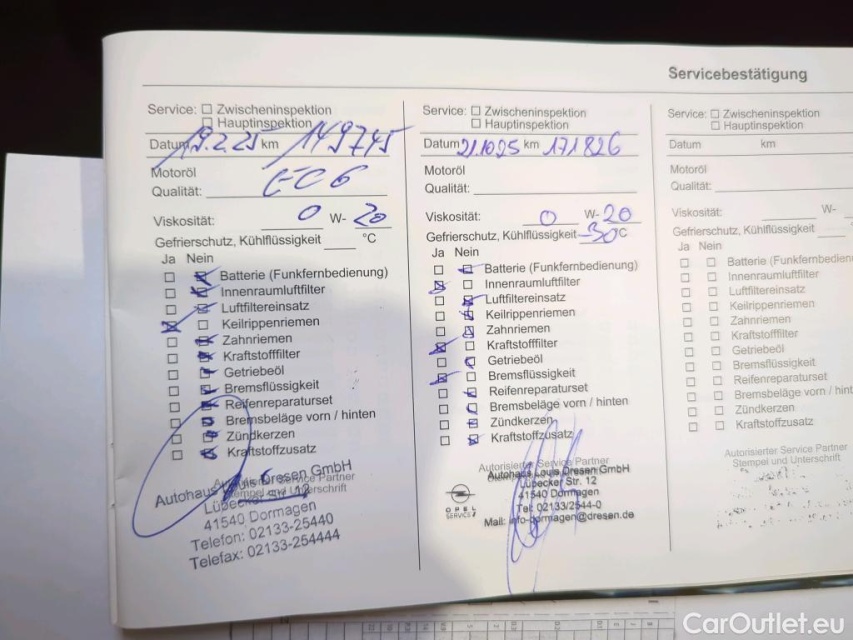 Servicebestätigung
Service: ☐ Zwischeninspektion
☐ Hauptinspektion
Datum 19.2.25 km 149745
Motoröl
Qualität:
Viskosität: 0 W- 20
Gefrierschutz, Kühlflüssigkeit °C
Ja Nein
Batterie (Funkfernbedienung)
Innenraumluftfilter
Luftfiltereinsatz
Keilrippenriemen
Zahnriemen
Kraftstofffilter
Getriebeöl
Bremsflüssigkeit
Reifenreparaturset
Bremsbeläge vorn / hinten
Zündkerzen
Kraftstoffzusatz
Autohaus Louis Dresen GmbH
Lübecker Str. 12
Stempel und Unterschrift
41540 Dormagen
Telefon: 02133-25440
Telefax: 02133-254444
Service: ☐ Zwischeninspektion
☐ Hauptinspektion
Datum 21.10.25 km 171826
Motoröl
Qualität:
Viskosität: 0 W- 20
Gefrierschutz, Kühlflüssigkeit -30°C
Ja Nein
Batterie (Funkfernbedienung)
Innenraumluftfilter
Luftfiltereinsatz
Keilrippenriemen
Zahnriemen
Kraftstofffilter
Getriebeöl
Bremsflüssigkeit
Reifenreparaturset
Bremsbeläge vorn / hinten
Zündkerzen
Kraftstoffzusatz
Autorisierter Service Partner
Autohaus Louis Dresen GmbH
Lübecker Str. 12
41540 Dormagen
Tel: 02133/2544-0
OPEL
SERVICE
Mail: info-dormagen@dresen.de
Service: ☐ Zwischeninspektion
☐ Hauptinspektion
Datum km
Motoröl
Qualität:
Viskosität: W-
Gefrierschutz, Kühlflüssigkeit
Ja Nein
Batterie (Funkfernbedienung
Innenraumluftfilter
Luftfiltereinsatz
Keilrippenriemen
Zahnriemen
Kraftstofffilter
Getriebeöl
Bremsflüssigkeit
Reifenreparaturset
Bremsbeläge vorn / hinten
Zündkerzen
Kraftstoffzusatz
Autorisierter Service Partner
Stempel und Unterschrift
CarOutlet.eu